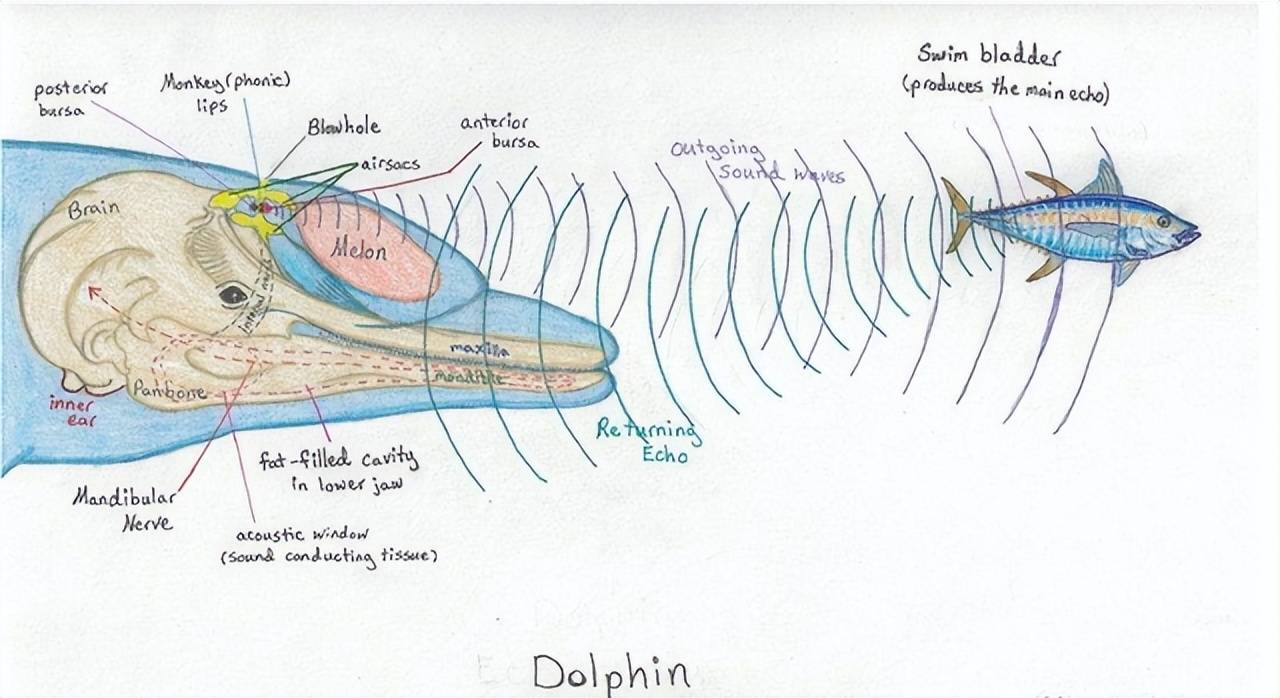 Swim bladder
(produces the main echo)
posterior
bursa
Monkey (phonic)
lips
Blowhole
anterior
bursa
airsacs
Outgoing
Sound waves
Brain
Melon
maxilla
mandible
Panbone
inner
ear
Returning
Echo
fat-filled cavity
in lower jaw
Mandibular
Nerve
acoustic window
(sound conducting tissue)
Dolphin